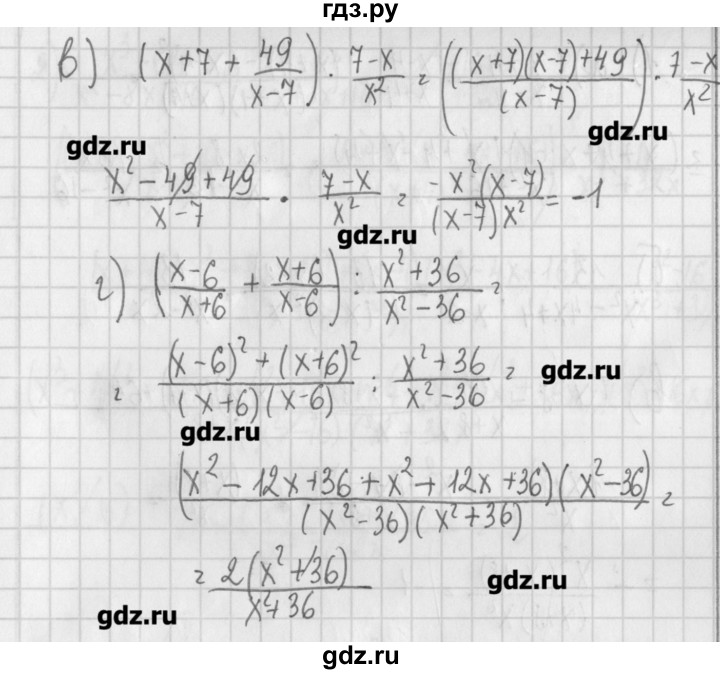 гдз.ру
в) (x+7 + 49/(x-7)) · (7-x)/x² = (((x+7)(x-7)+49)/(x-7)) · (7-x)/x²
gdz.ru
gdz.ru
(x² - 49 + 49)/(x-7) · (7-x)/x² = (-x²(x-7))/((x-7)x²) = -1
gdz.ru
г) ((x-6)/(x+6) + (x+6)/(x-6)) : (x²+36)/(x²-36) =
= ((x-6)² + (x+6)²)/((x+6)(x-6)) : (x²+36)/(x²-36) =
gdz.ru
gdz.ru
((x² - 12x + 36 + x² + 12x + 36)(x²-36))/((x²-36)(x²+36)) =
= 2(x²+36)/(x²+36)
gdz.ru
gdz.ru
gdz.ru